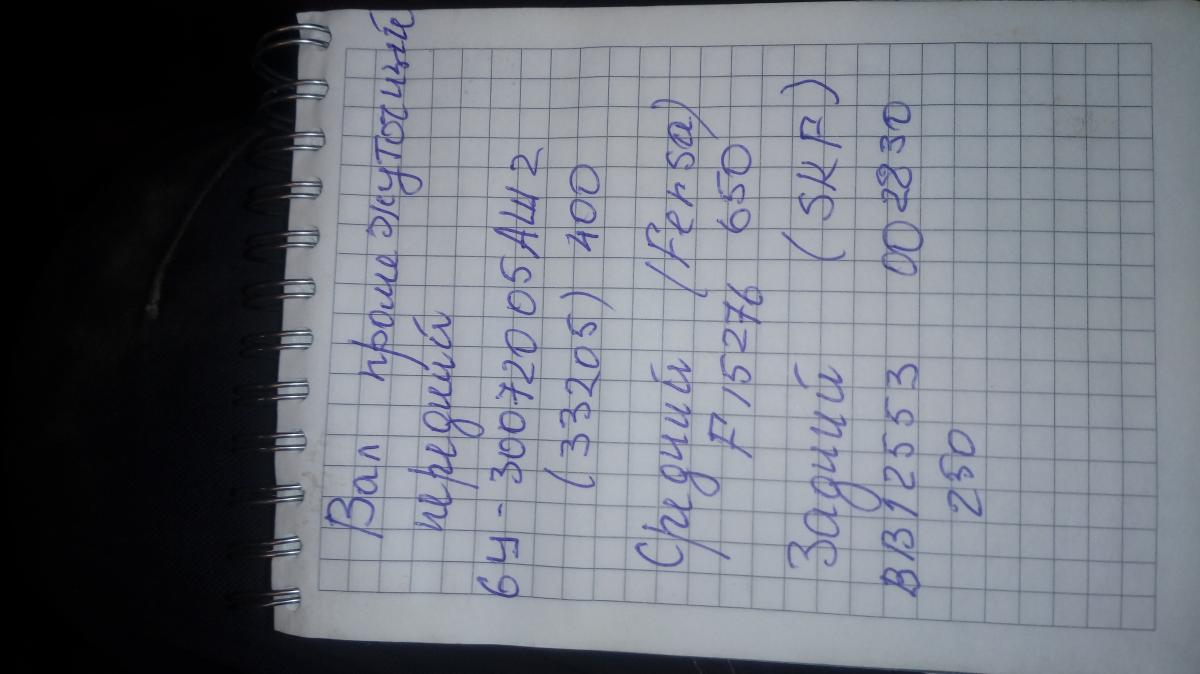 Вал промежуточный
передний
6У-3007205АШ2
(33205) 400
Средний (Fersa)
F15276 650
Задний (SKF)
BB12553 002830
250